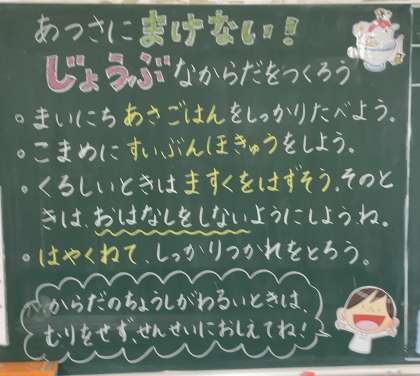 あつさにまけない!
じょうぶなからだをつくろう
。まいにちあさごはんをしっかりたべよう。
。こまめにすいぶんほきゅうをしよう。
。くるしいときはますくをはずそう。そのと
きは、おはなしをしないようにしようね。
。はやくねて、しっかりつかれをとろう。
からだのちょうしがわるいときは、
むりをせず、せんせいにおしえてね!